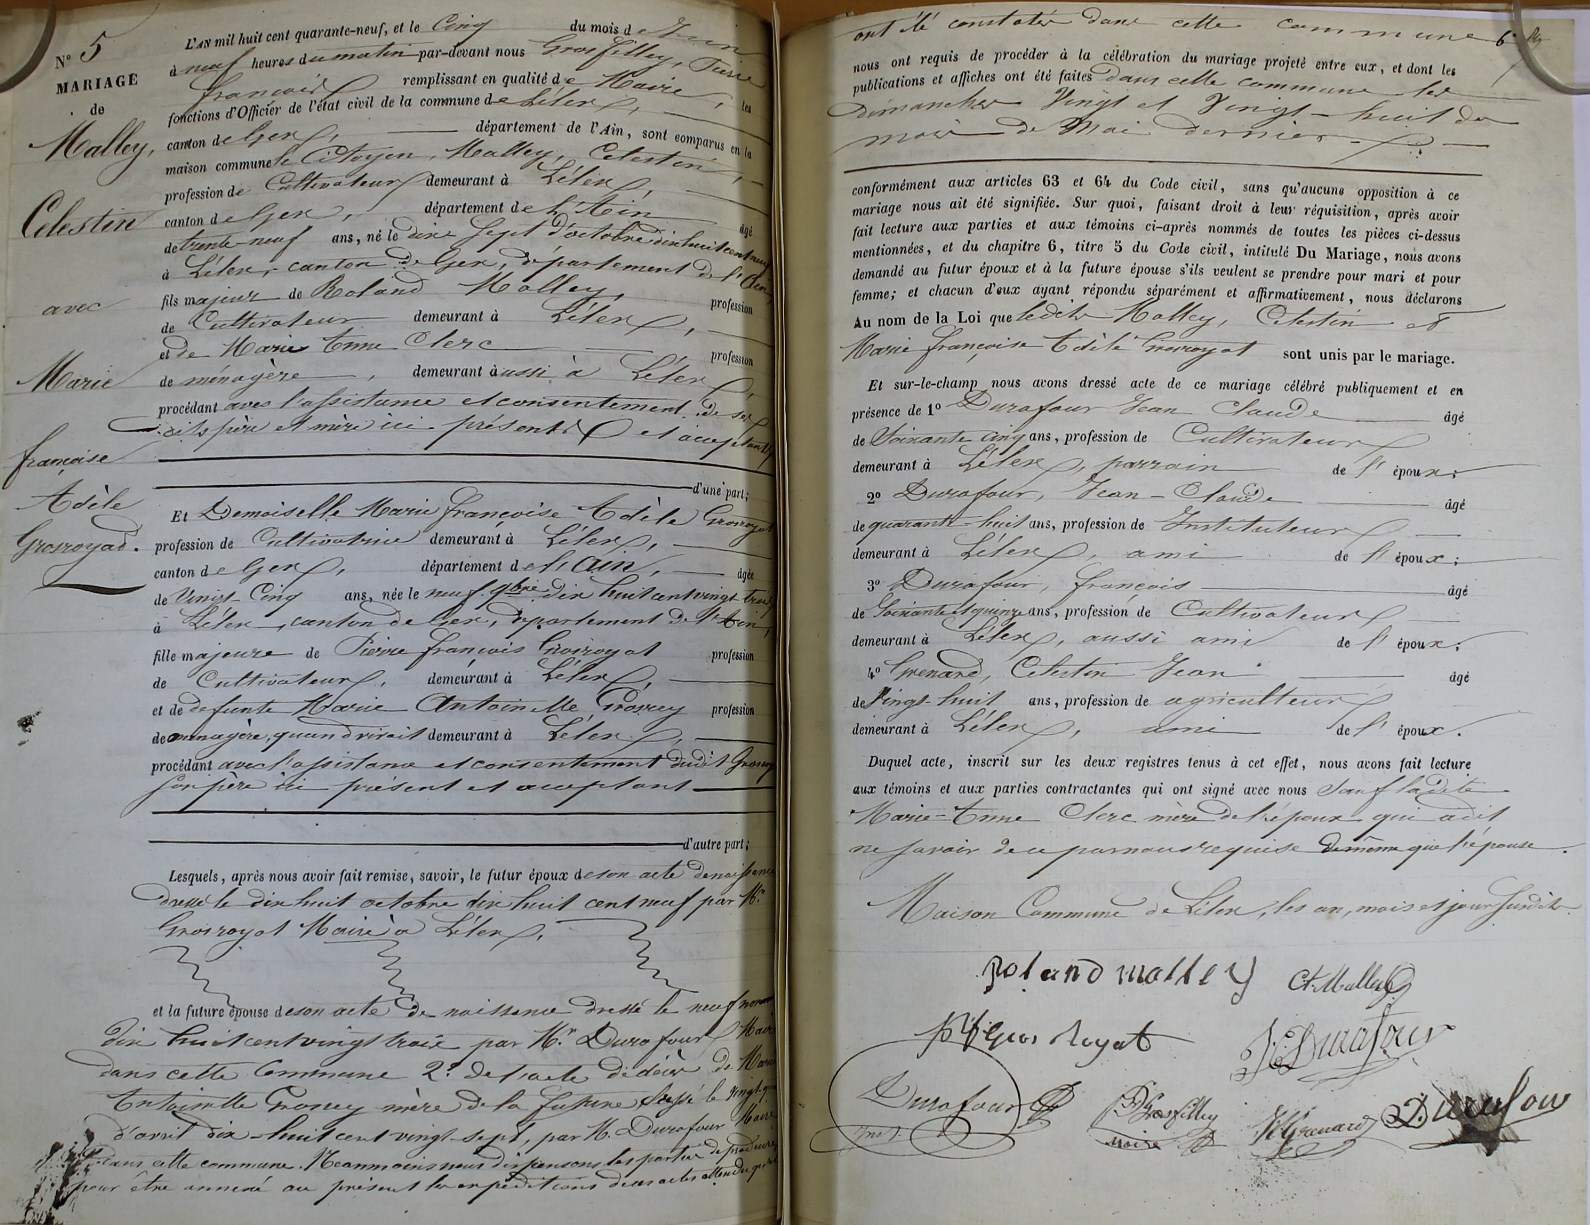 N° 5
MARIAGE
de
Malley,
Célestin
avec
Marie
françoise
Adèle
Grosroyat.
L'AN mil huit cent quarante-neuf, et le Cinq du mois de Juin
à neuf heures du matin par-devant nous Grosfilley, Pierre
françois remplissant en qualité de Maire, les
fonctions d'Officier de l'état civil de la commune de Lélex,
canton de Gex, département de l'Ain, sont comparus en la
maison commune le Citoyen, Malley, Célestin,
profession de Cultivateur demeurant à Lélex,
canton de Gex, département de l'Ain âgé
de trente-neuf ans, né le dix sept d'octobre dix huit cent neuf
à Lélex, canton de Gex, département de l'Ain,
fils majeur de Roland Malley, profession
de Cultivateur demeurant à Lélex,
et de Marie Anne Clerc profession
de ménagère, demeurant aussi à Lélex,
procédant avec l'assistance et consentement de ses
dits père et mère ici présents et acceptants
d'une part;
Et Demoiselle Marie françoise Adèle Grosroyat
profession de Cultivatrice demeurant à Lélex,
canton de Gex, département de l'Ain, âgée
de Vingt Cinq ans, née le neuf 9bre dix huit cent vingt trois
à Lélex, canton de Gex, département de l'Ain,
fille majeure de Pierre françois Grosroyat profession
de Cultivateur, demeurant à Lélex,
et de defunte Marie Antoinette Grossey profession
de ménagère, quand vivait demeurant à Lélex,
procédant avec l'assistance et consentement dudit Grosroyat
son père ici présent et acceptant
d'autre part;
Lesquels, après nous avoir fait remise, savoir, le futur époux de son acte de naissance
dressé le dix huit octobre dix huit cent neuf par Mr.
Grosroyat Maire à Lélex.
et la future épouse de son acte de naissance dressé le neuf novembre
dix huit cent vingt trois par Mr. Durafour Maire
dans cette Commune 2.° de l'acte de décès de Marie
Antoinette Grossey mère de la future dressé le vingt
d'avril dix-huit cent vingt-sept, par M. Durafour Maire
dans cette commune. Néanmoins nous dispensons les parties de produire
pour être annexé au présent les expéditions de ces actes attendu qu'ils
ont été constatés dans cette commune
6e
nous ont requis de procéder à la célébration du mariage projeté entre eux, et dont les
publications et affiches ont été faites dans cette commune les
dimanches Vingt et Vingt-huit du
mois de Mai dernier.
conformément aux articles 63 et 64 du Code civil, sans qu'aucune opposition à ce
mariage nous ait été signifiée. Sur quoi, faisant droit à leur réquisition, après avoir
fait lecture aux parties et aux témoins ci-après nommés de toutes les pièces ci-dessus
mentionnées, et du chapitre 6, titre 5 du Code civil, intitulé Du Mariage, nous avons
demandé au futur époux et à la future épouse s'ils veulent se prendre pour mari et pour
femme; et chacun d'eux ayant répondu séparément et affirmativement, nous déclarons
Au nom de la Loi que ledit Malley, Célestin et
Marie françoise Adèle Grosroyat sont unis par le mariage.
Et sur-le-champ nous avons dressé acte de ce mariage célébré publiquement et en
présence de 1° Durafour Jean Claude âgé
de Soixante cinq ans, profession de Cultivateur
demeurant à Lélex, parrain de l'époux;
2° Durafour, Jean-Claude âgé
de quarante-huit ans, profession de Instituteur
demeurant à Lélex, ami de l'époux;
3° Durafour, françois âgé
de Soixante et quinze ans, profession de Cultivateur
demeurant à Lélex, aussi ami de l'époux;
4° Grenard, Célestin Jean âgé
de Vingt-huit ans, profession de agriculteur
demeurant à Lélex, ami de l'époux.
Duquel acte, inscrit sur les deux registres tenus à cet effet, nous avons fait lecture
aux témoins et aux parties contractantes qui ont signé avec nous Sauf ladite
Marie-Anne Clerc mère de l'époux qui a dit
ne savoir de ce par nous requise de même que l'épouse.
Maison Commune de Lélex, les an, mois et jour susdits.
Roland malley Ct. Malley
Pf Gros Royat JC Durafour
Durafour Pf Grosfilley JC Grenard Durafour
Maire